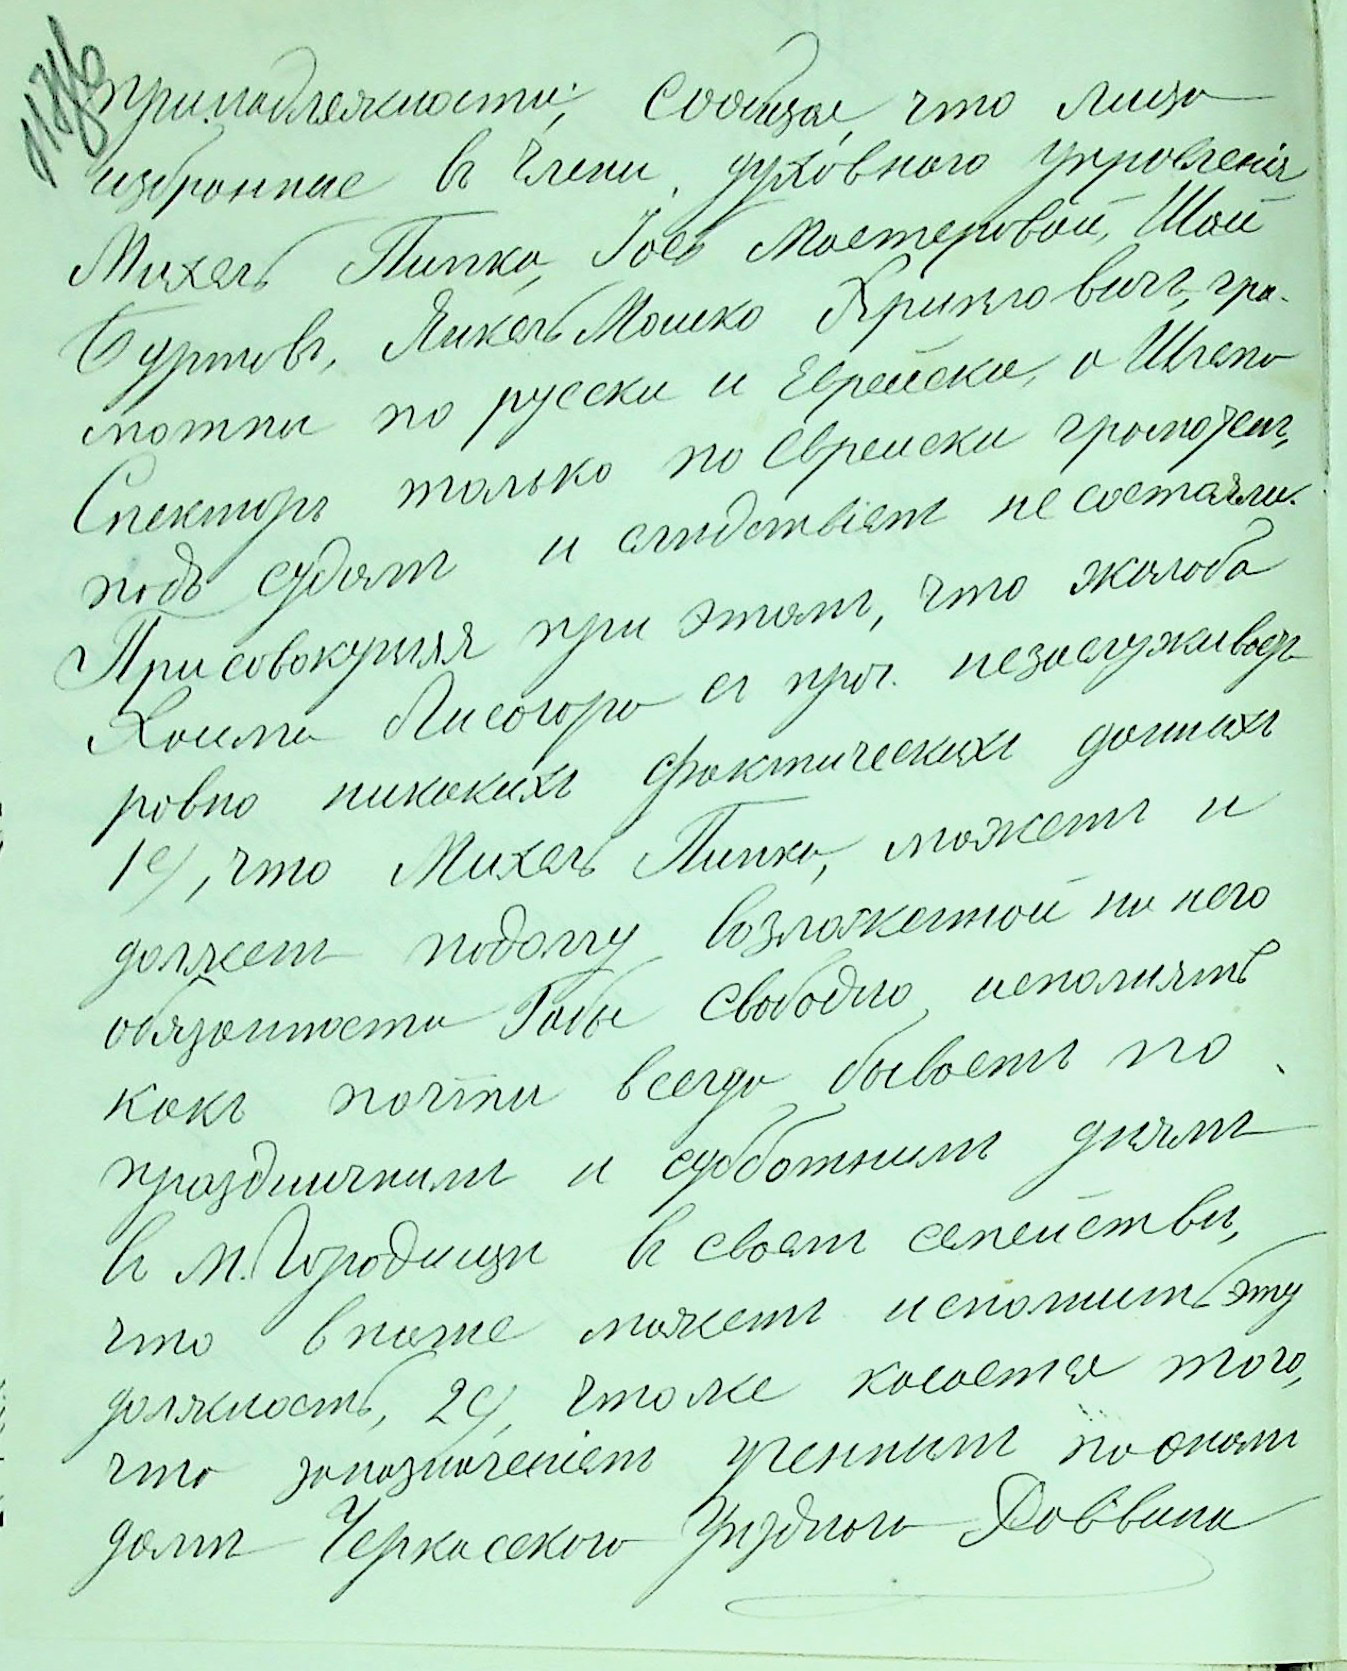 принадлежности, сообщая, что лица
избранные въ члены духовнаго управленія
Михель Пипко, Іось Мастеровой, Шай
Буртовъ, Янкель Мошко гра-
мотны по русски и Еврейски, а
Спекторъ только по Еврейски грамотенъ,
подъ судомъ и слѣдствіемъ не состояли.
Присовокупляя при этомъ, что жалоба
Хаима Лисогора съ проч. незаслуживаетъ
ровно никакихъ фактическихъ данныхъ
1е/, что Михель Пипко, можетъ и
долженъ подолгу возложенной на него
обязанности Габе свободно исполнять
какъ почти всегда бываетъ по
праздничнымъ и субботнимъ днямъ
въ м. Городищѣ въ своемъ семействѣ,
что вполнѣ можетъ исполнить эту
должность, 2е/ чтоже касается того,
что заназначеніемъ ученымъ
домъ Черкасского Уѣзднаго Раввина